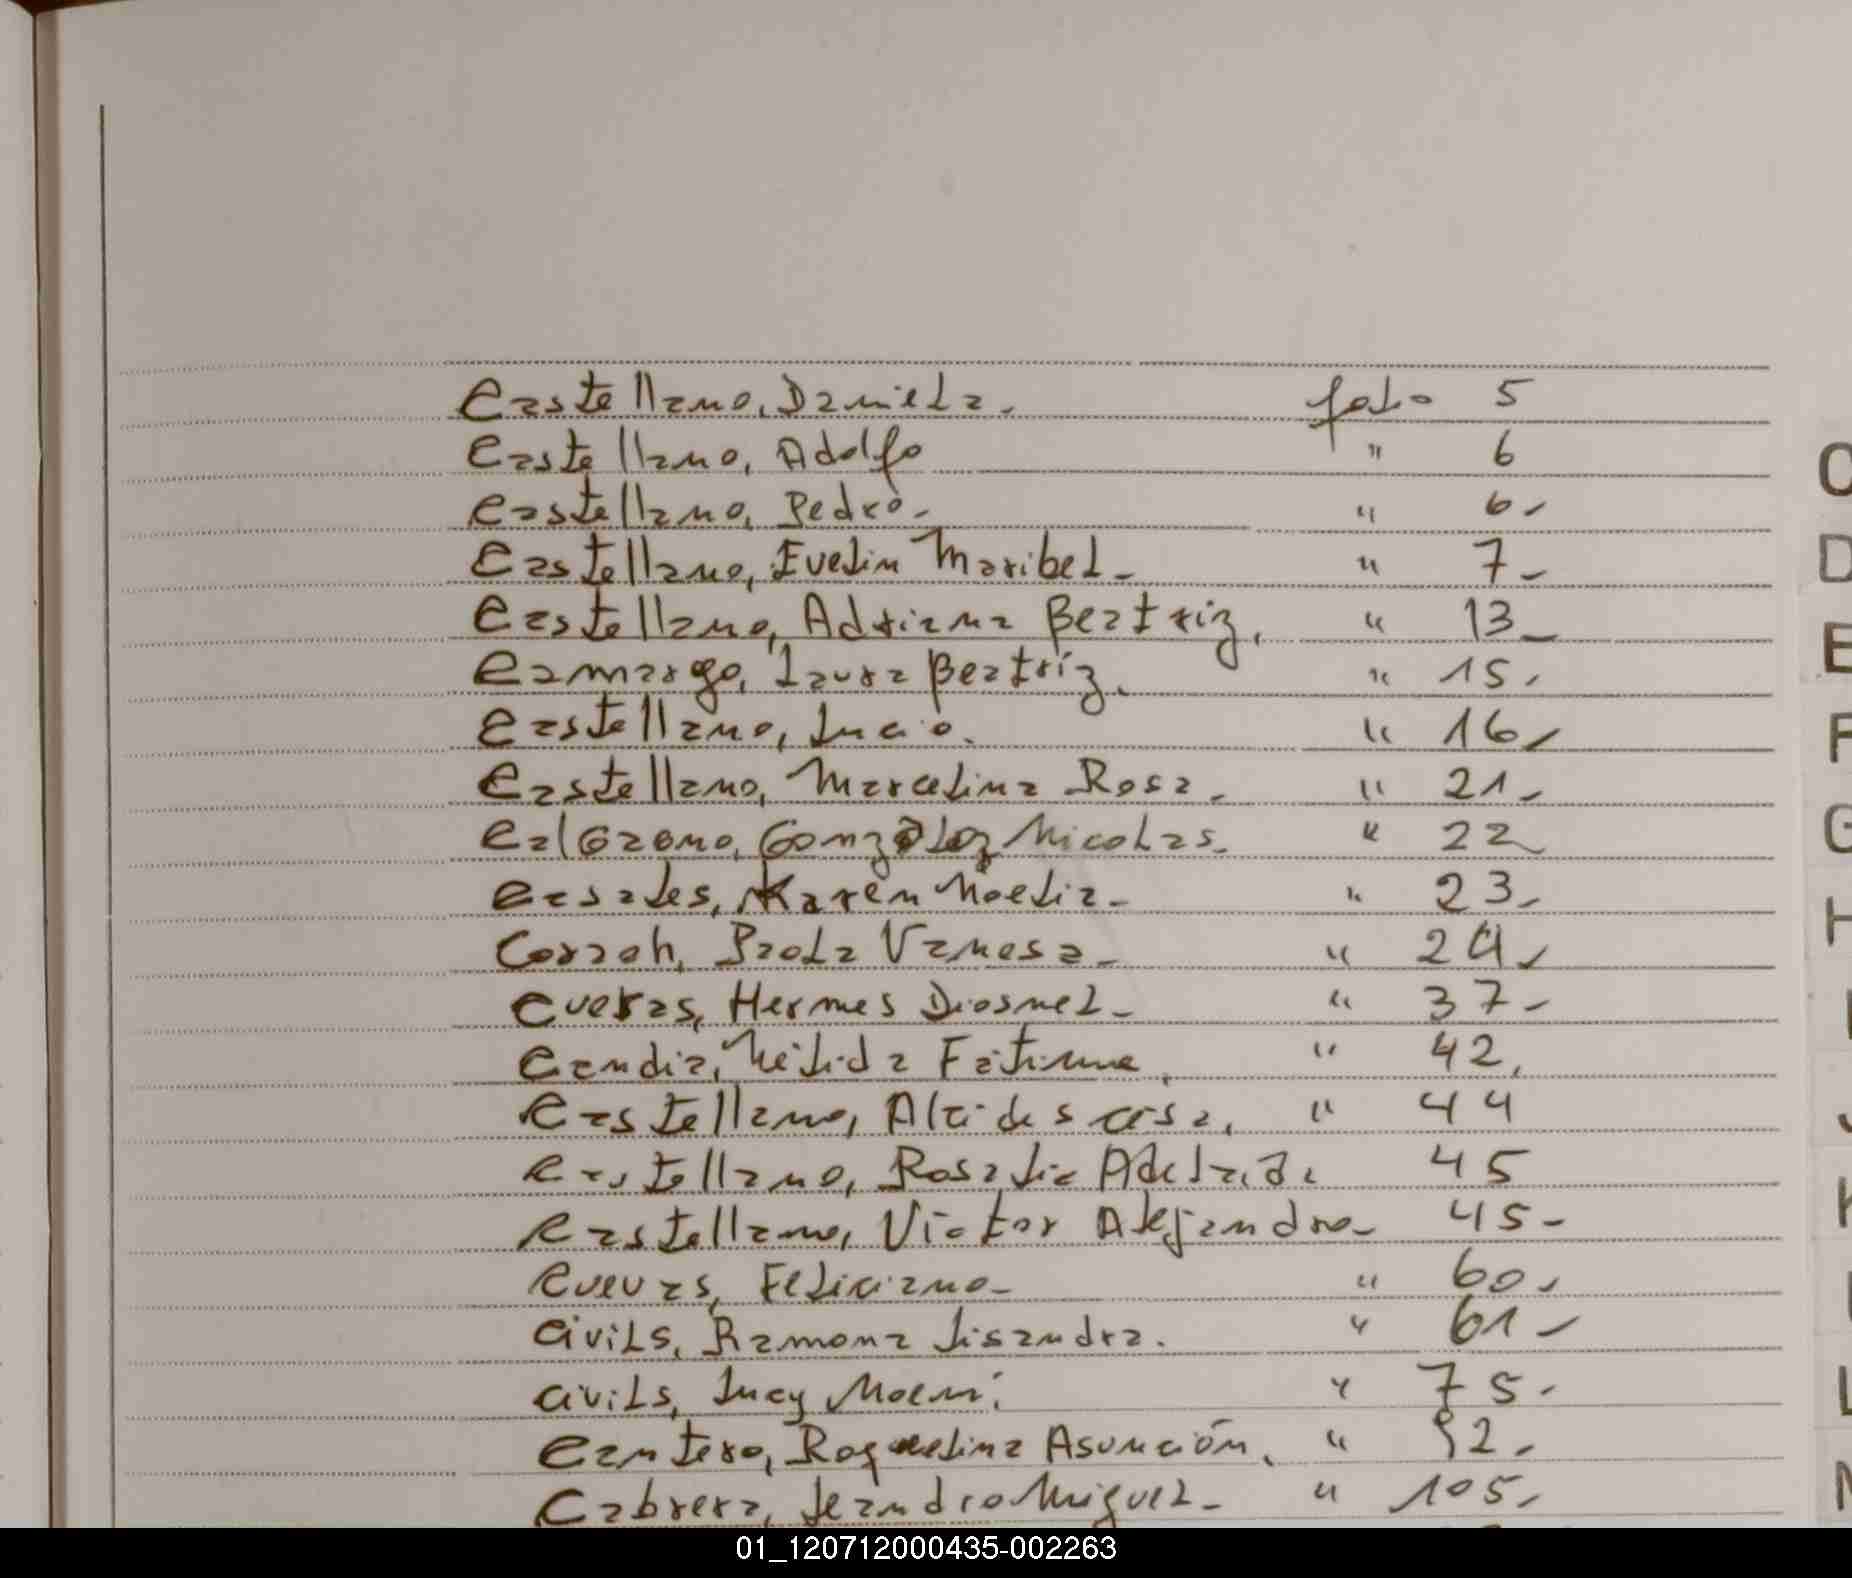 Castellano, Daniela. folio 5
Castellano, Adolfo " 6
Castellano, Pedro. " 6-
Castellano, Evelin Maribel- " 7-
Castellano, Adriana Beatriz. " 13-
Camargo, Laura Beatriz. " 15.
Castellano, Lucio. " 16-
Castellano, Marcelina Rosa. " 21-
González Nicolas. " 22
Casales, Karen Noelia- " 23-
Corzoh, Paola Vanesa- " 24-
Cuevas, Hermes Diosnel- " 37-
Candia, Nélida Fátima. " 42.
Castellano, Alcides " 44
Castellano, Rosalia Adelaida 45
Castellano, Victor Alejandro- 45-
Cuevas, Feliciano- " 60-
Civils, Ramona Lisandra. " 61-
Civils, Lucy Noemí. " 75-
Cantero, Roquelina Asunción. " 92.
Cabrera, Leandro Miguel- " 105-
C
D
E
F
G
H
I
J
K
L
L
M
01_120712000435-002263